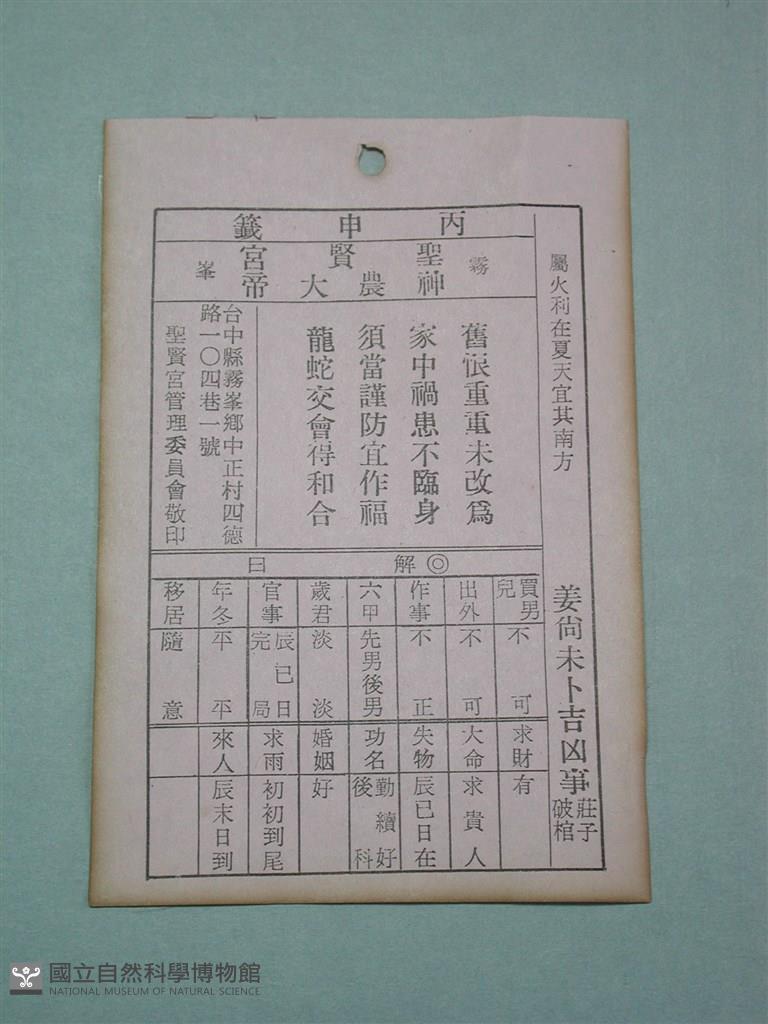 屬火利在夏天宜其南方
姜尙未卜吉凶事
莊子
破棺
丙申籤
霧峯
聖賢宮
神農大帝
舊恨重重未改爲
家中禍患不臨身
須當謹防宜作福
龍蛇交會得和合
台中縣霧峯鄉中正村四德
路一〇四巷一號
聖賢宮管理委員會敬印
◎解曰
買男兒 不可 求財 有
出外 不可 大命 求貴人
作事 不正 失物 辰巳日在
六甲 先男後男 功名 勤續好後科
歲君 淡淡 婚姻 好
官事 辰巳日完局 求雨 初初到尾
年冬 平平 來人 辰末日到
移居 隨意
國立自然科學博物館
NATIONAL MUSEUM OF NATURAL SCIENCE